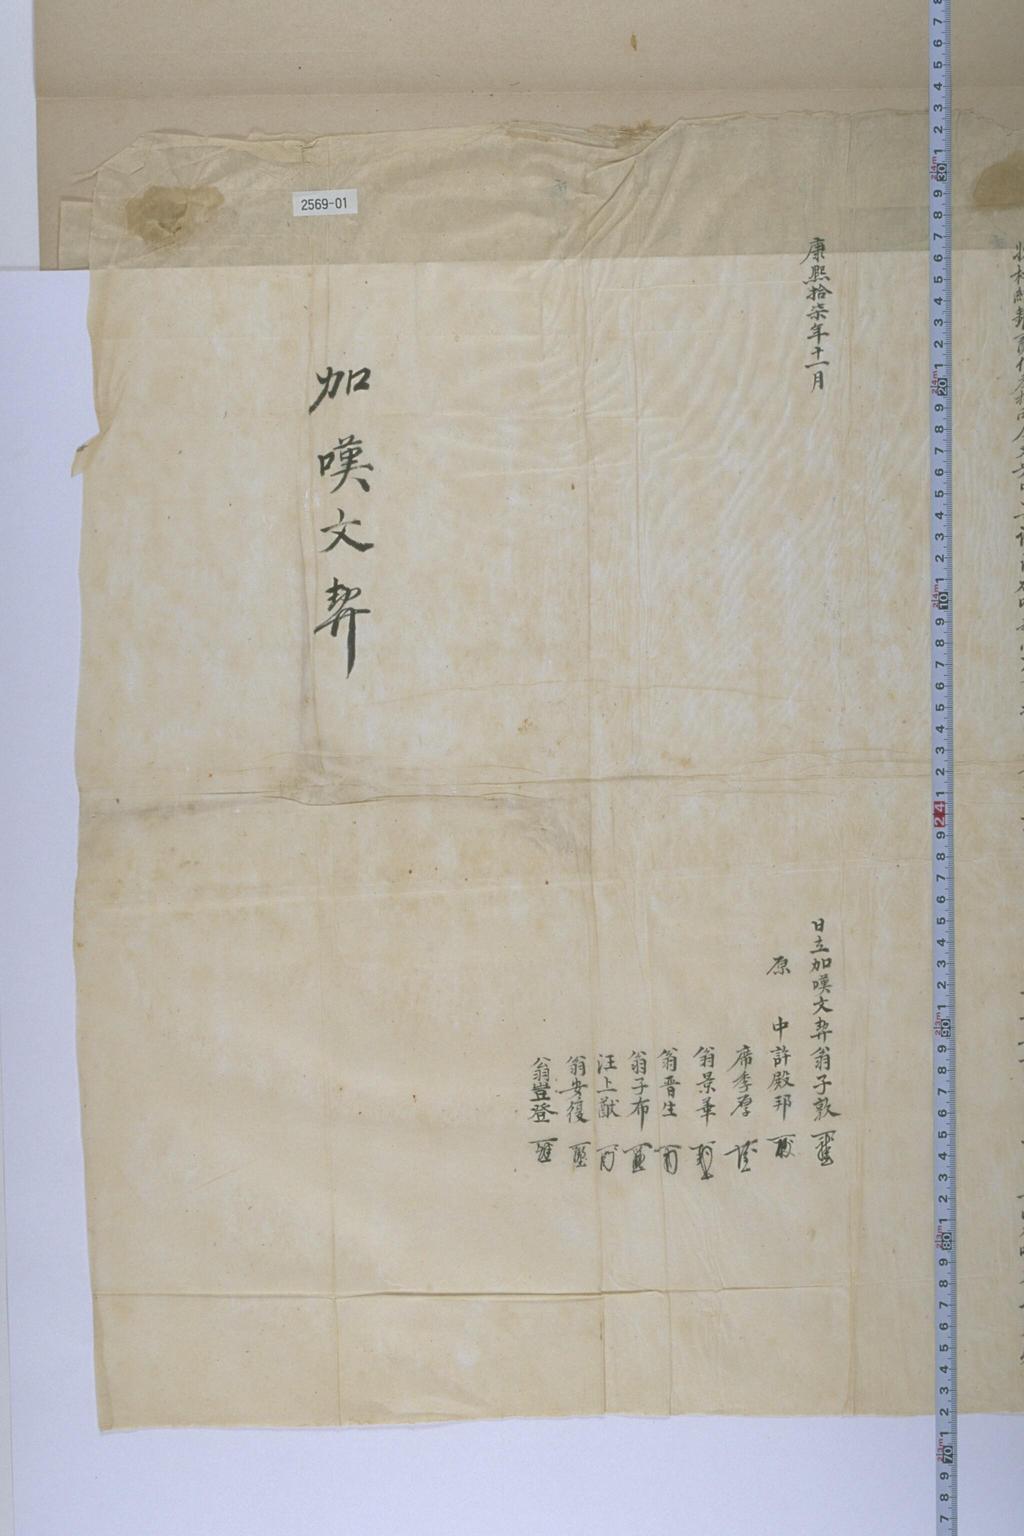 康熙拾柒年十一月
日立加嘆文契翁子敦
原 中許殿邦
席季厚
翁景華
翁晋生
翁子布
汪上猷
翁安復
翁豈登
加嘆文契
2569-01